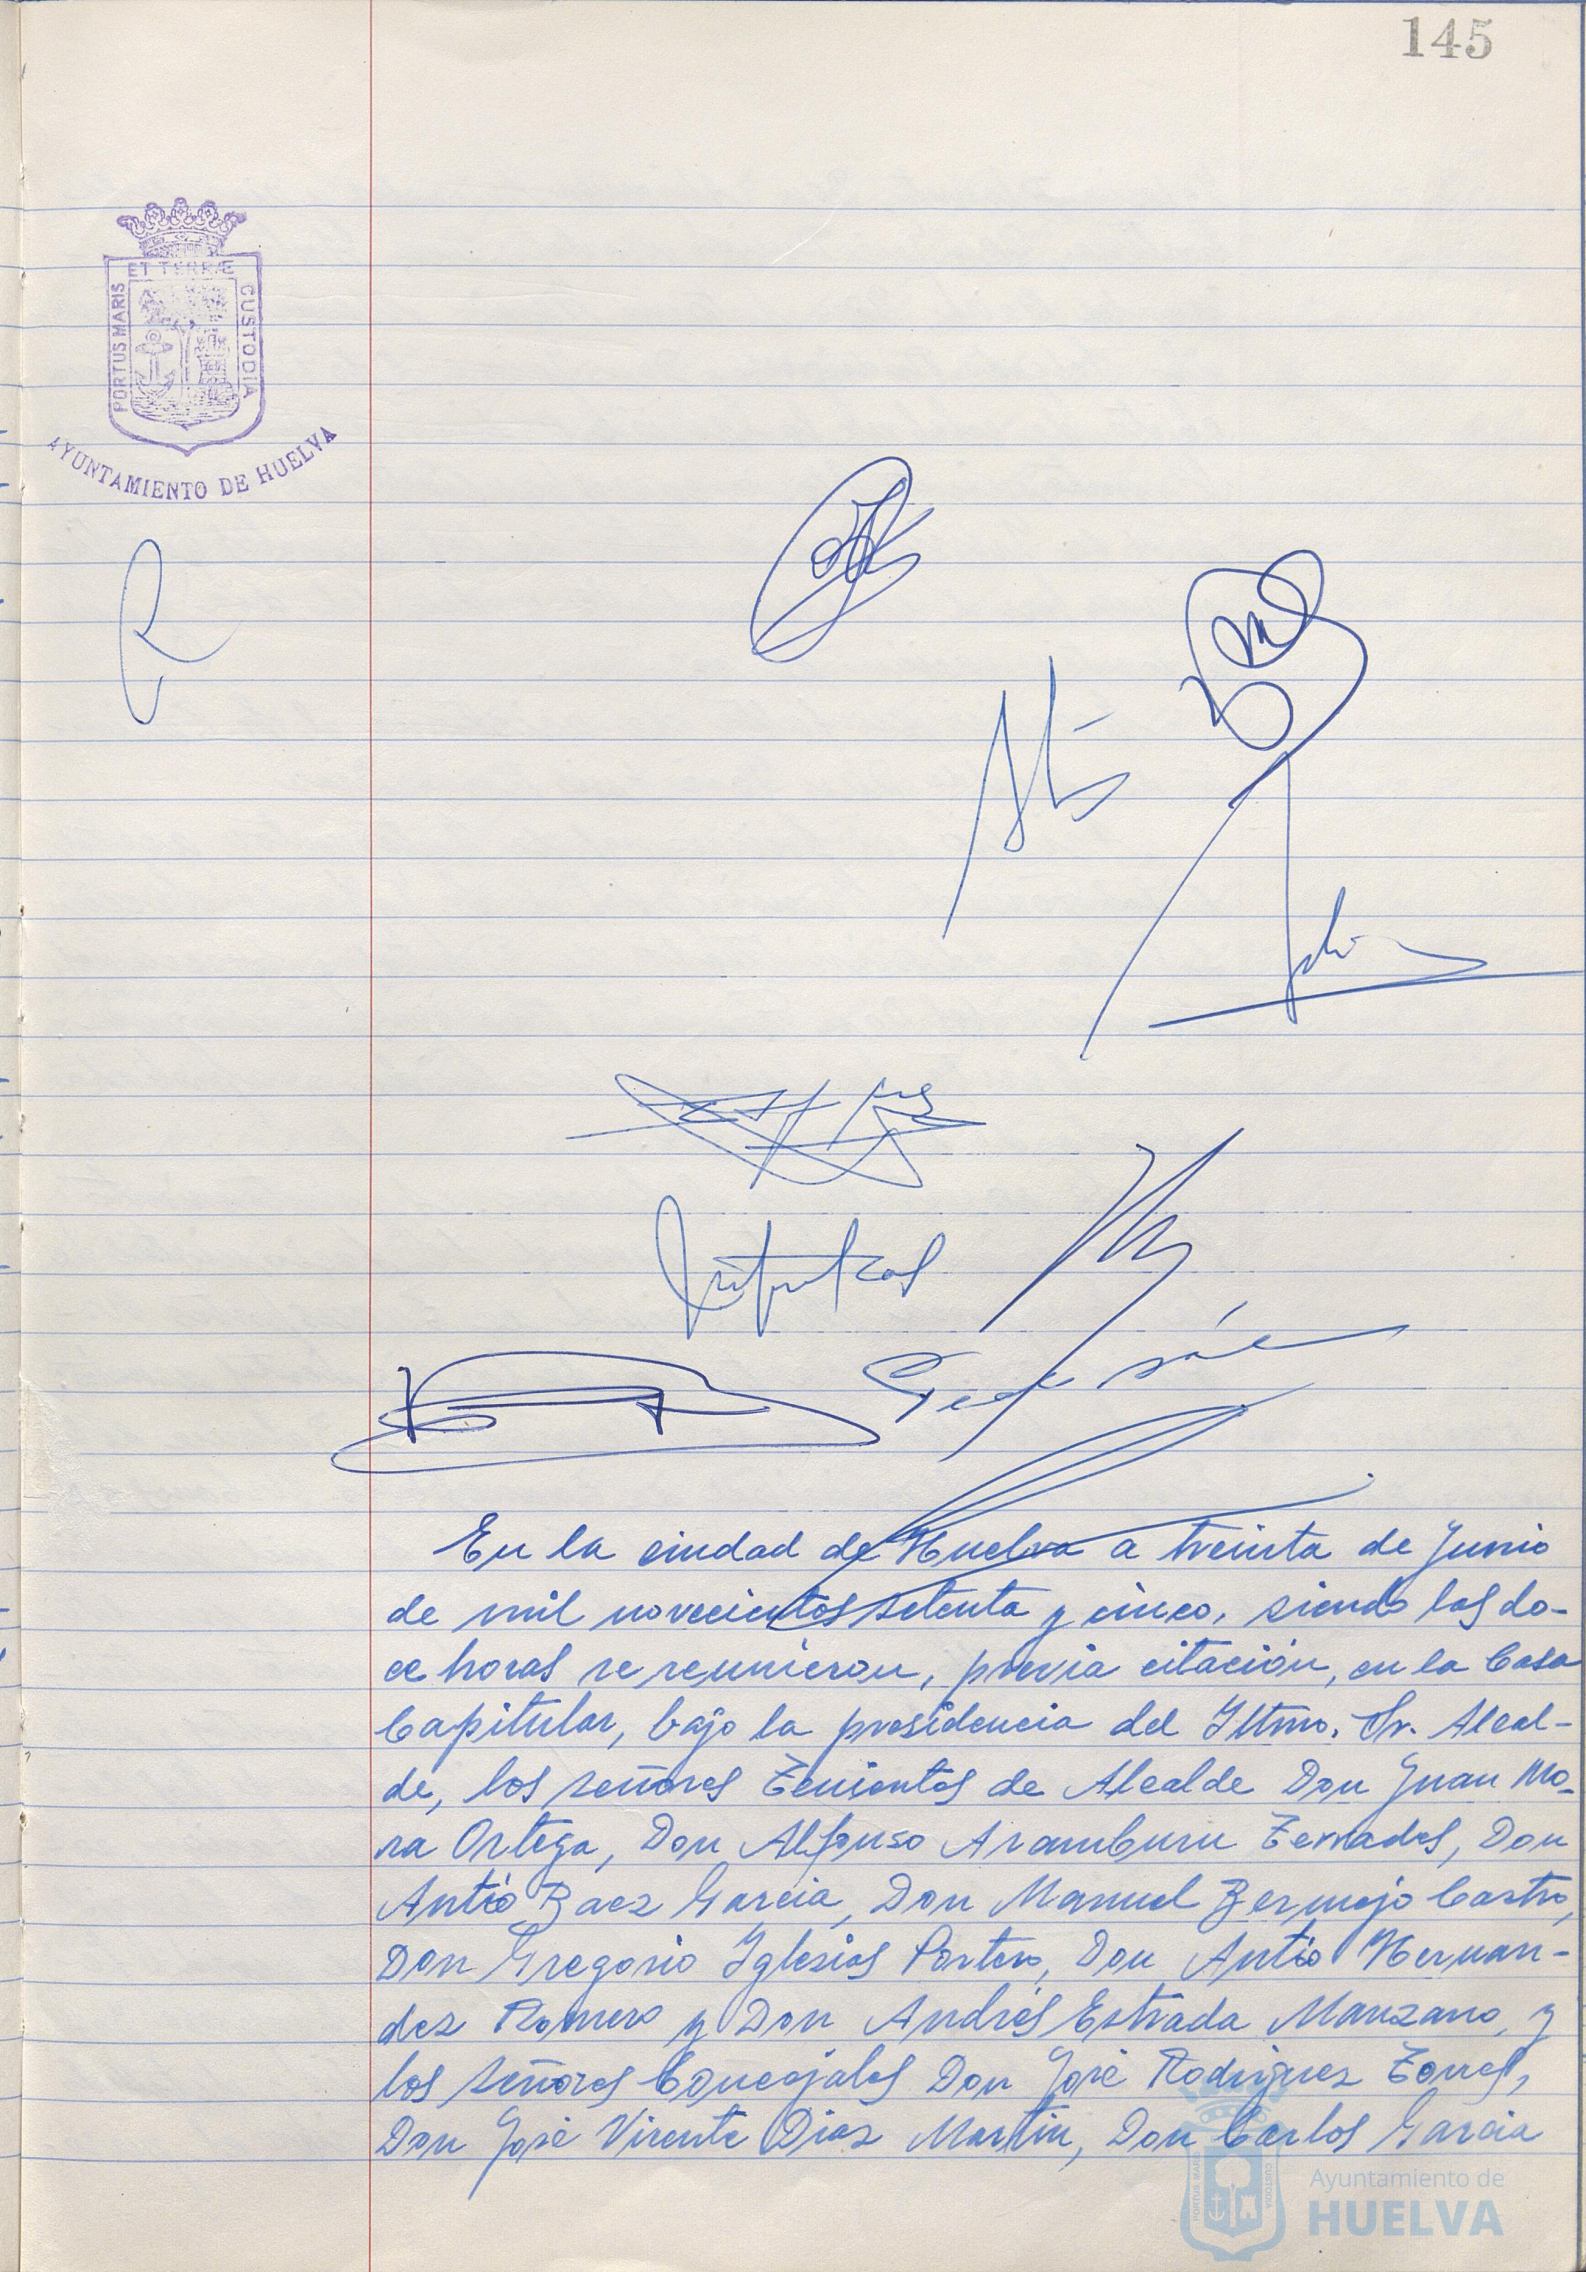 145
ET TERRÆ
PORTUS MARIS
CUSTODIA
AYUNTAMIENTO DE HUELVA
En la ciudad de Huelva a treinta de Junio
de mil novecientos setenta y cinco, siendo las do-
ce horas se reunieron, previa citación, en la Casa
Capitular, bajo la presidencia del Iltmo. Sr. Alcal-
de, los señores Tenientes de Alcalde Don Juan Mo-
ra Ortega, Don Alfonso Aramburu Terrades, Don
Antº Baez Garcia, Don Manuel Bermejo Castro,
Don Gregorio Iglesias Portero, Don Antº Hernan-
dez Romero y Don Andrés Estrada Manzano, y
los señores Concejales Don José Rodriguez Torres,
Don José Vicente Diaz Martin, Don Carlos Garcia
Ayuntamiento de
HUELVA